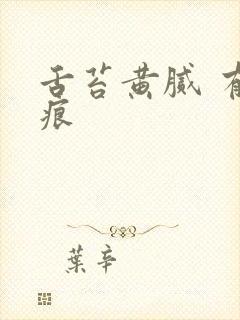 舌苔黄腻
痕
葉辛